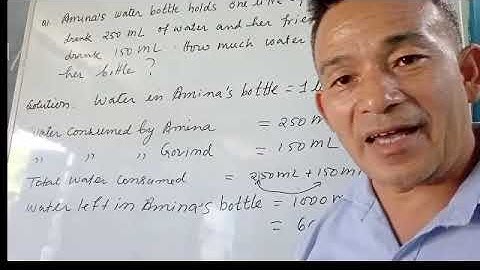 Q1. Amina's water bottle holds one litre
drank 250 mL of water and her frie
drank 150 mL. How much water
her bottle ?
Solution. Water in Amina's bottle = 1
Water consumed by Amina = 250 m
" " " Govind = 150 mL
Total water consumed = 250 mL + 150 m
Water left in Amina's bottle = 1000 m
= 6